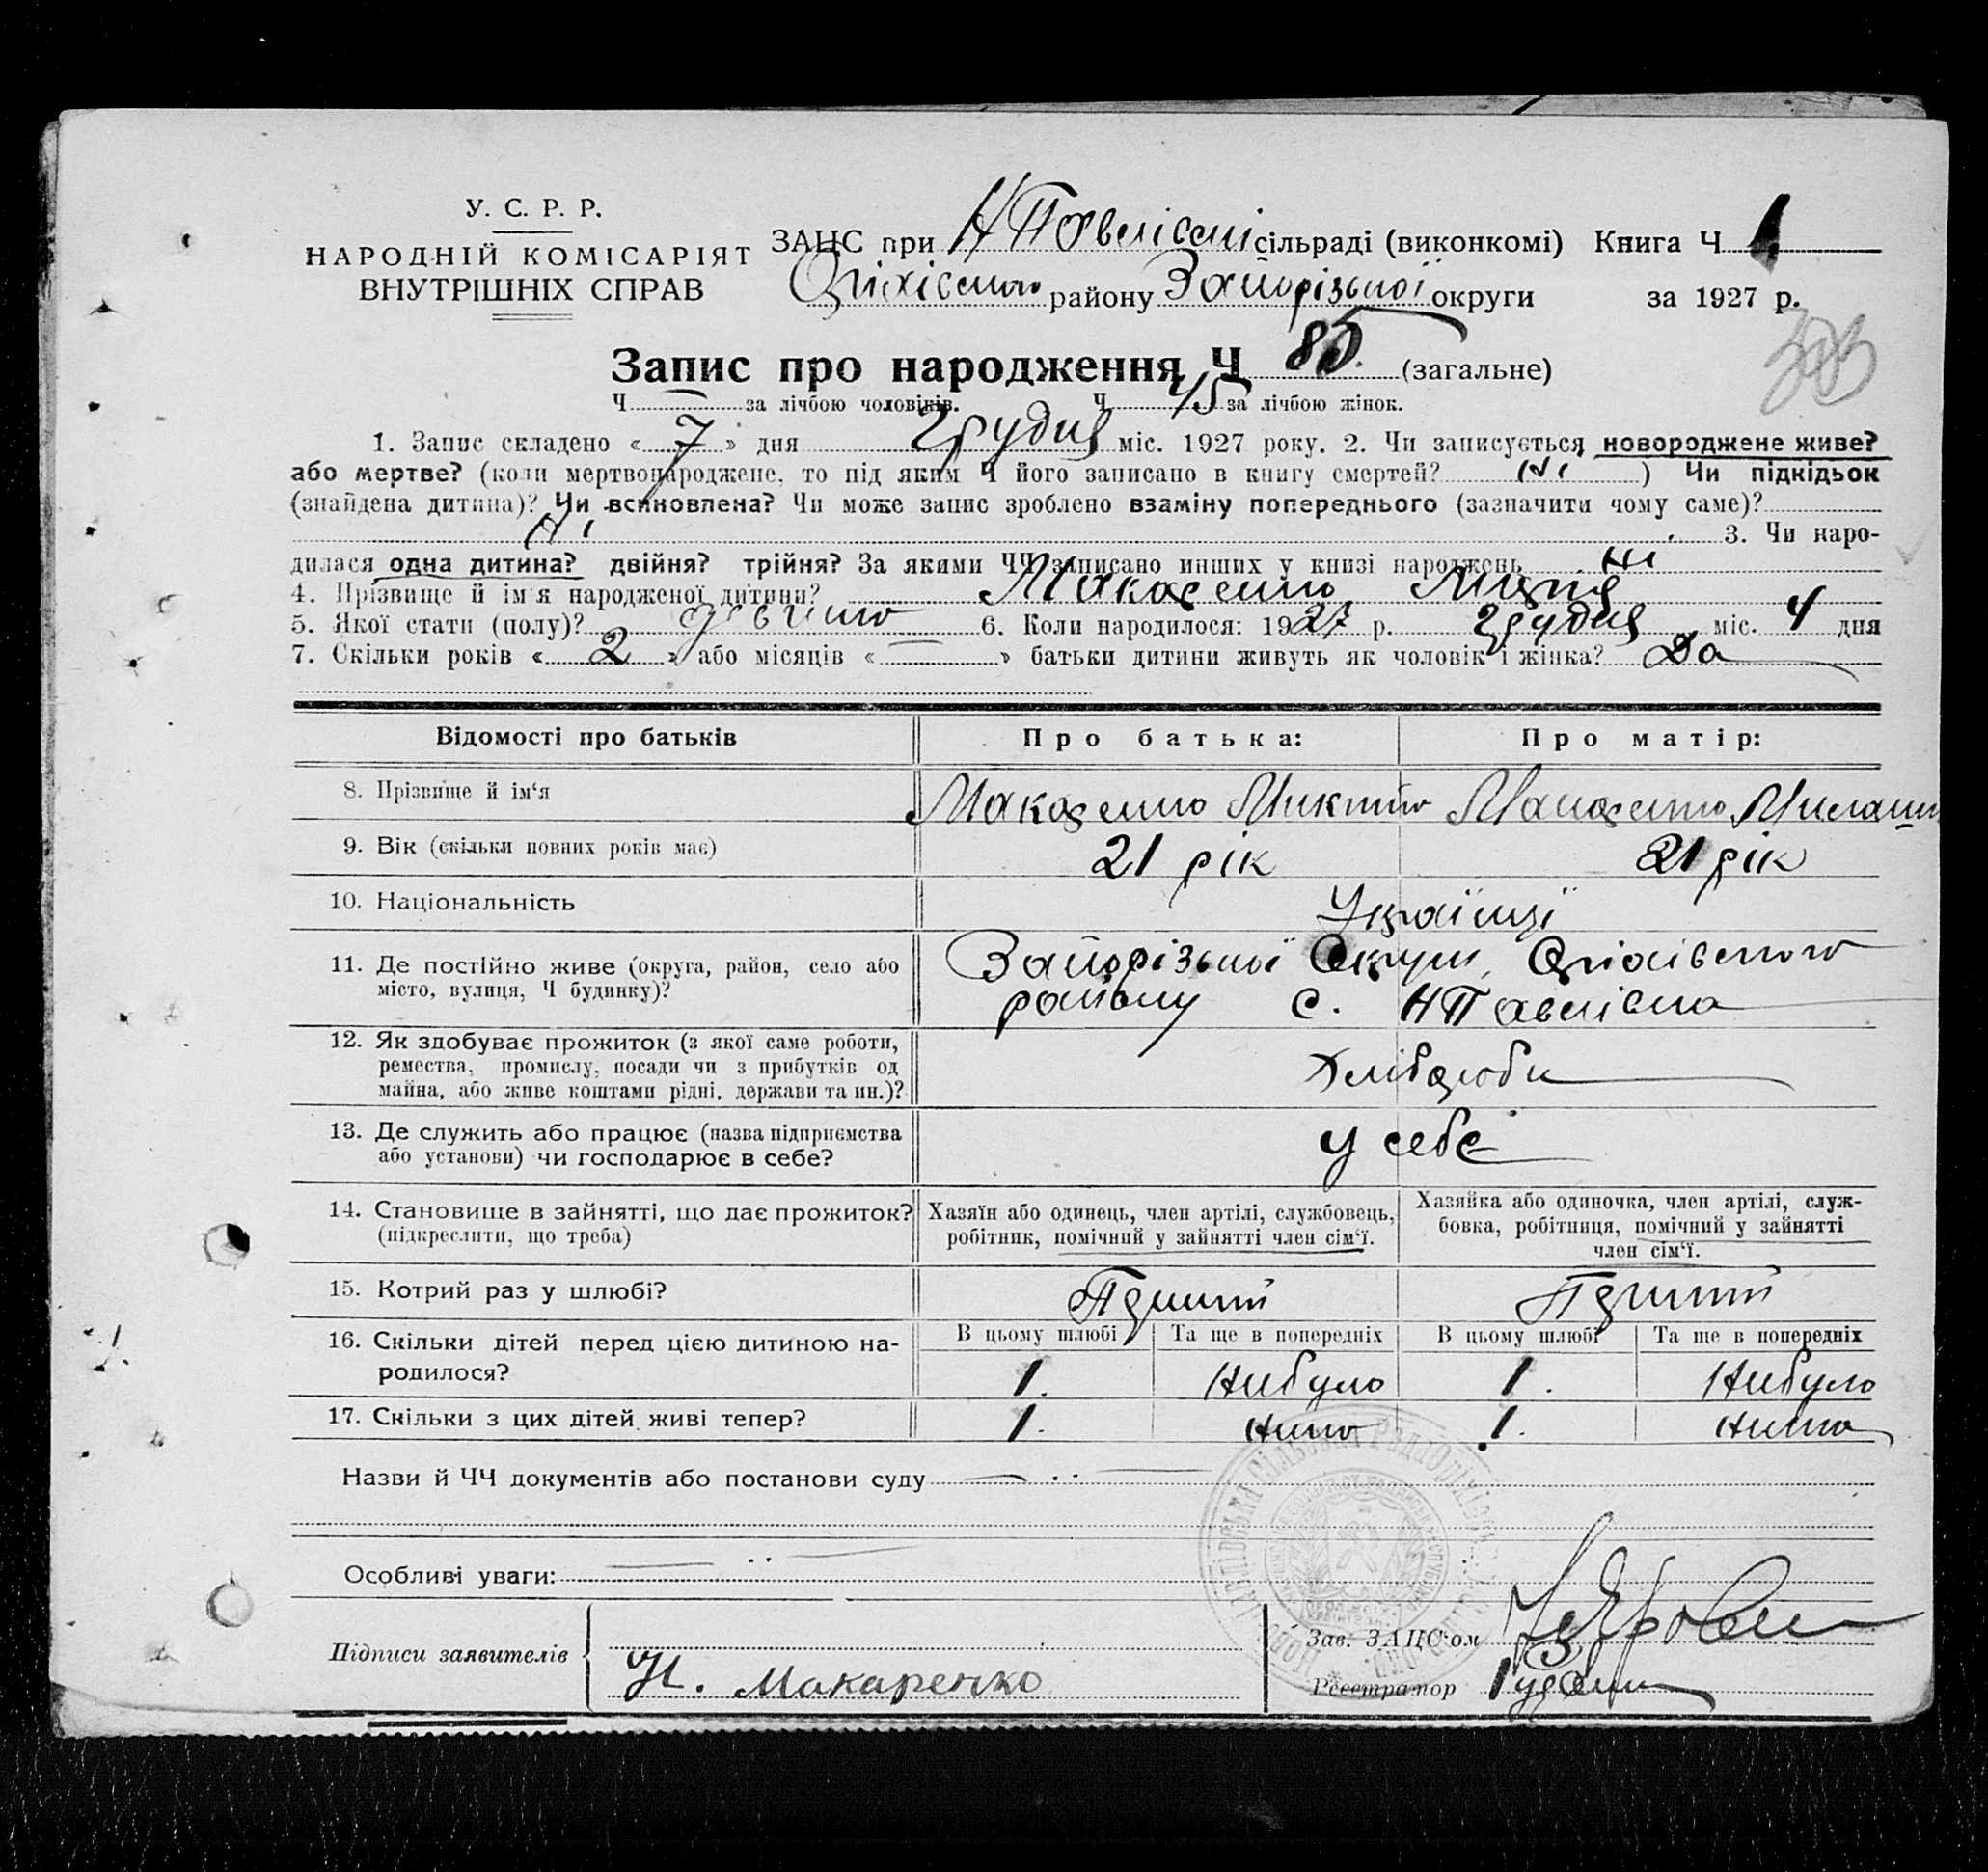 У. С. Р. Р.
НАРОДНІЙ КОМІСАРІЯТ
ВНУТРІШНІХ СПРАВ
ЗАЦС при Н Павлівські сільраді (виконкомі) Книга Ч 1
Оріхівського району Запорізької округи за 1927 р.
Запис про народження Ч 85. (загальне)
Ч за лічбою чоловіків. Ч 45 за лічбою жінок.
1. Запис складено « 7 » дня Грудня міс. 1927 року. 2. Чи записується новороджене живе?
або мертве? (коли мертвонароджене, то під яким Ч його записано в книгу смертей? Ні ) Чи підкідьок
(знайдена дитина)? Чи всиновлена? Чи може запис зроблено взаміну попереднього (зазначити чому саме)?
Ні 3. Чи наро-
дилася одна дитина? двійня? трійня? За якими ЧЧ записано инших у книзі народжень Ні
4. Прізвище й ім'я народженої дитини? Макаренко Марія
5. Якої стати (полу)? 6. Коли народилося: 1927 р. Грудня міс. 4 дня
7. Скільки років « 2 » або місяців « — » батьки дитини живуть як чоловік і жінка? Да
Відомості про батьків Про батька: Про матір:
8. Прізвище й ім'я Макаренко Микита Макаренко
9. Вік (скільки повних років має) 21 рік 21 рік
10. Національність Українці
11. Де постійно живе (округа, район, село або Запорізької Округи, Оріхівського
місто, вулиця, Ч будинку)? району с. НПавлівка
12. Як здобуває прожиток (з якої саме роботи,
ремества, промислу, посади чи з прибутків од Хлібороби
майна, або живе коштами рідні, держави та ин.)?
13. Де служить або працює (назва підприємства у себе
або установи) чи господарює в себе?
14. Становище в зайнятті, що дає прожиток? Хазяїн або одинець, член артілі, службовець, Хазяйка або одиночка, член артілі, служ-
(підкреслити, що треба) робітник, помічний у зайнятті член сім'ї. бовка, робітниця, помічний у зайнятті
член сім'ї.
15. Котрий раз у шлюбі? Перший Перший
16. Скільки дітей перед цією дитиною на- В цьому шлюбі Та ще в попередніх В цьому шлюбі Та ще в попередніх
родилося? 1. Небуло 1. Небуло
17. Скільки з цих дітей живі тепер? 1. Нема 1. Нема
Назви й ЧЧ документів або постанови суду
Особливі уваги:
Підписи заявителів Зав. ЗАЦС'ом
Н. Макаренко Реєстратор